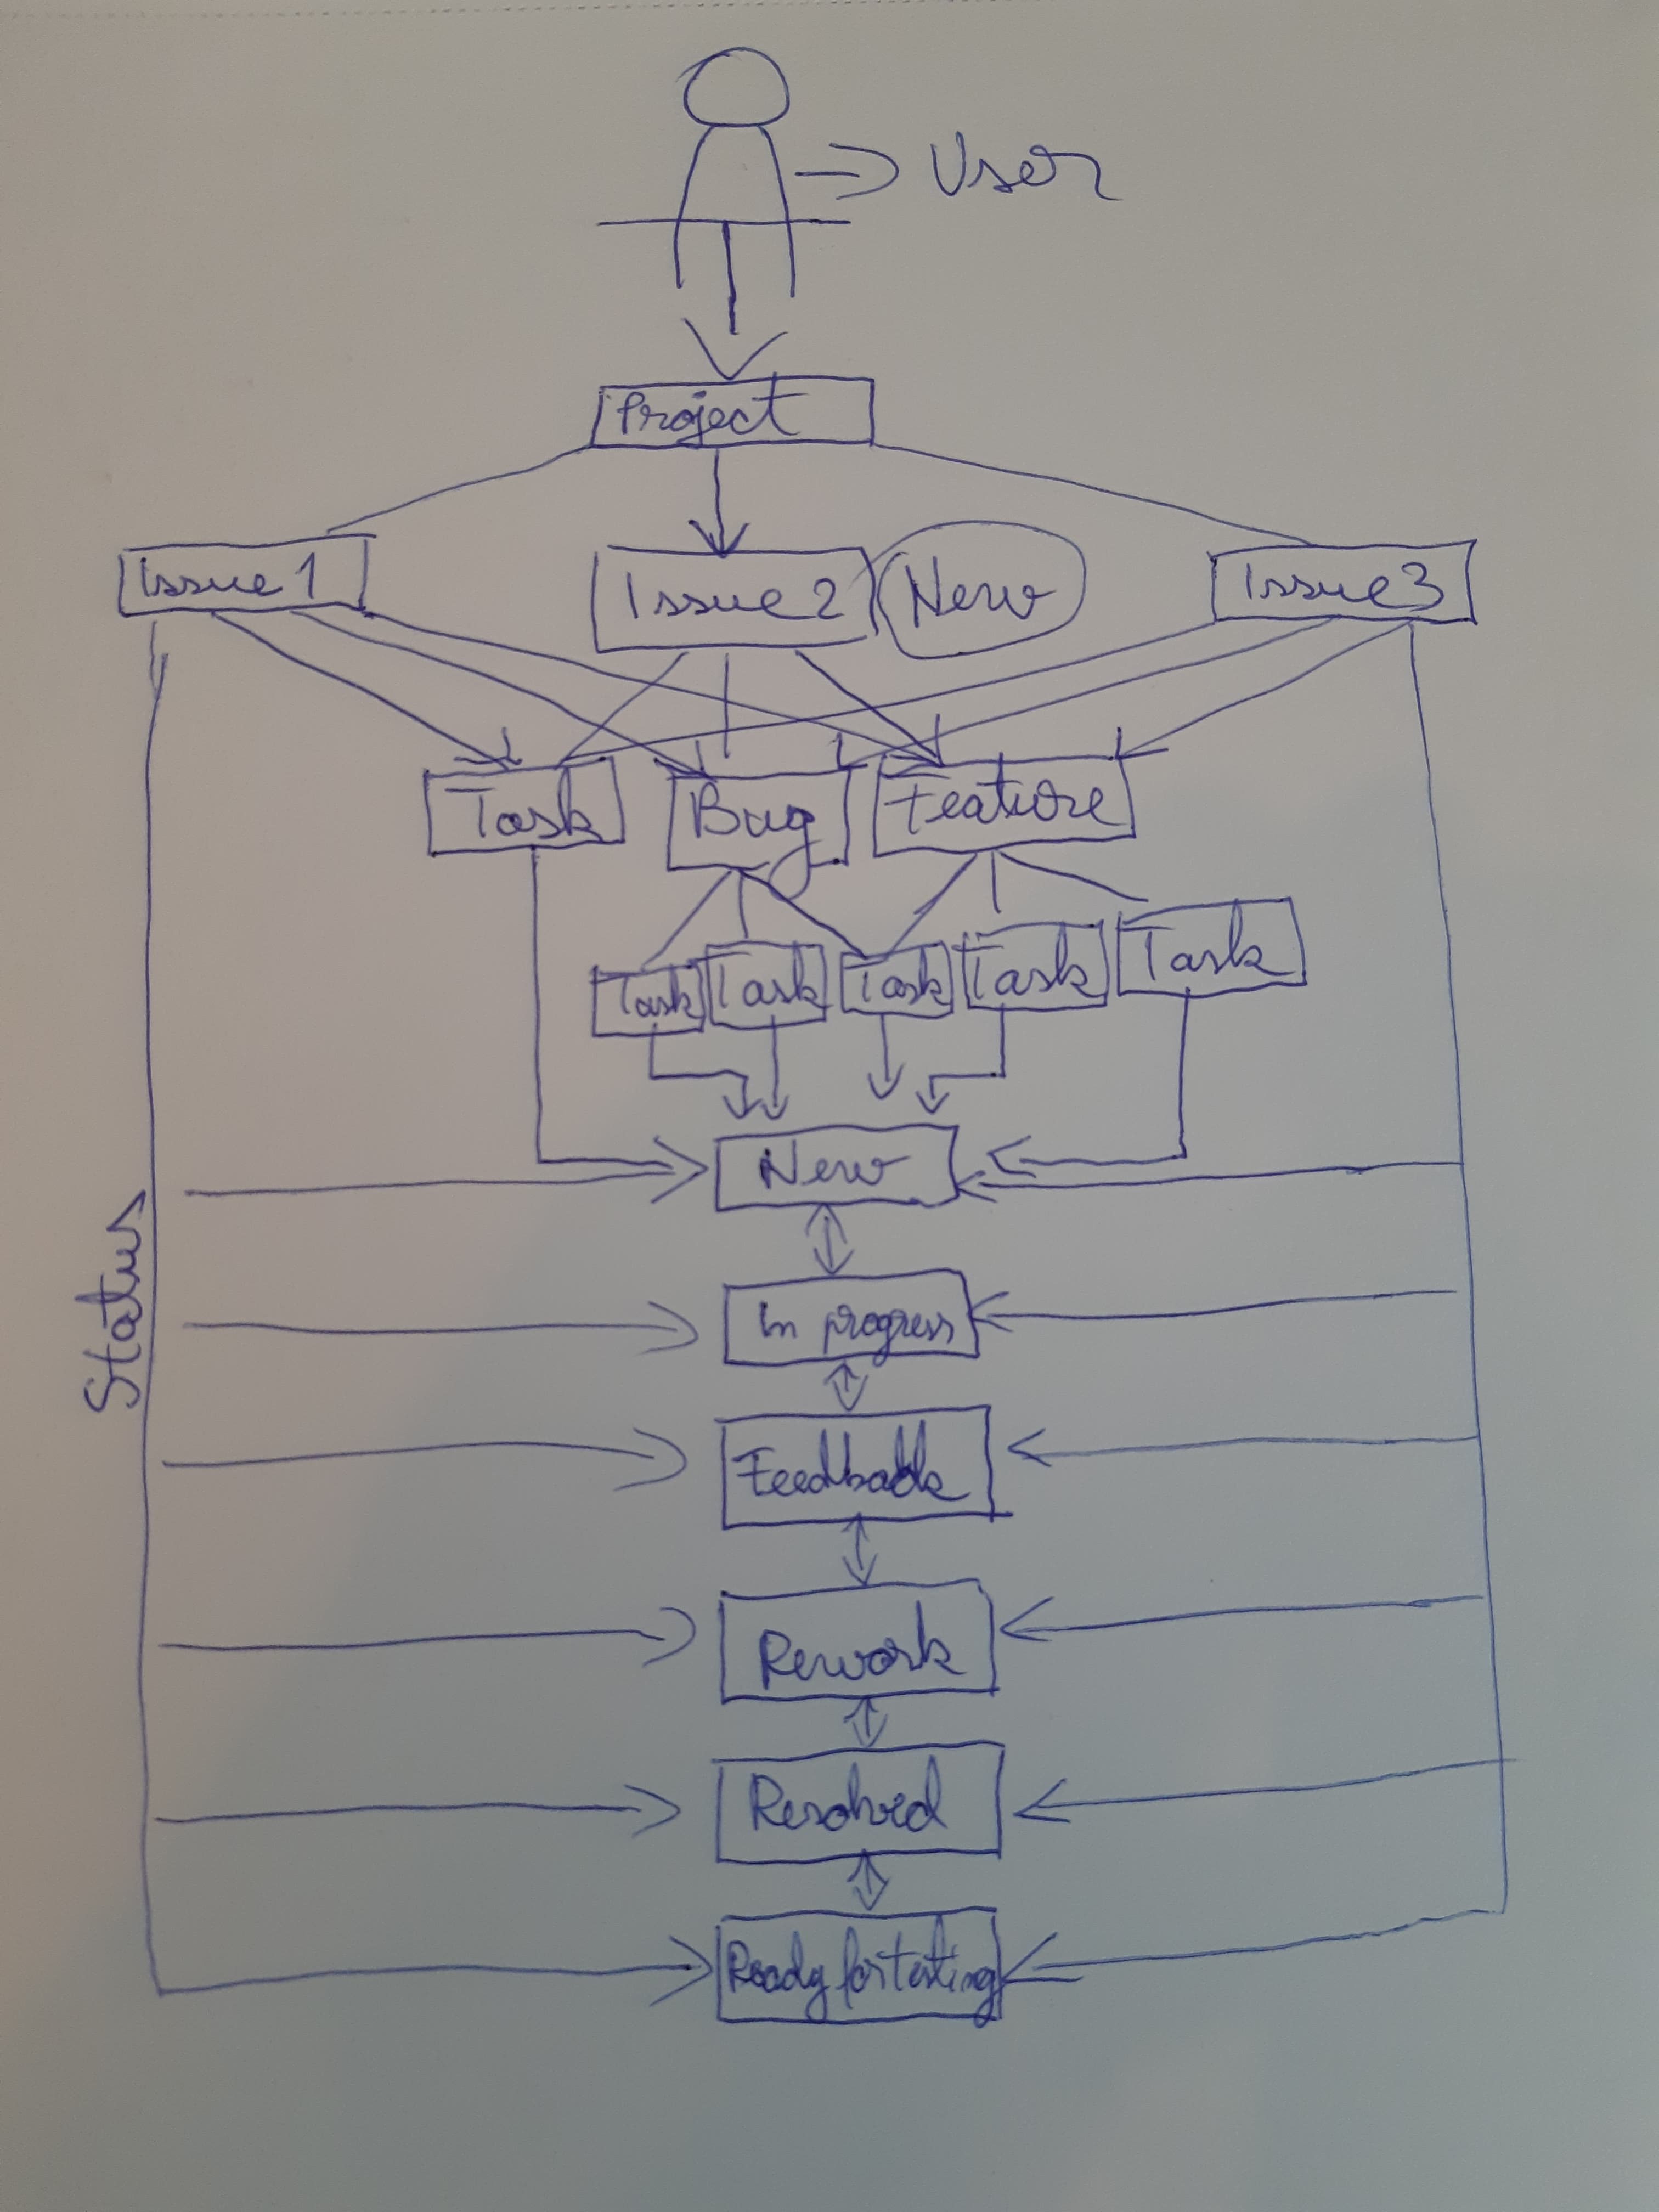 User
Project
Issue 1
Issue 2
New
Issue 3
Task
Bug
Feature
Task
Task
Task
Task
Task
New
Status
In progress
Feedback
Rework
Resolved
Ready for testing